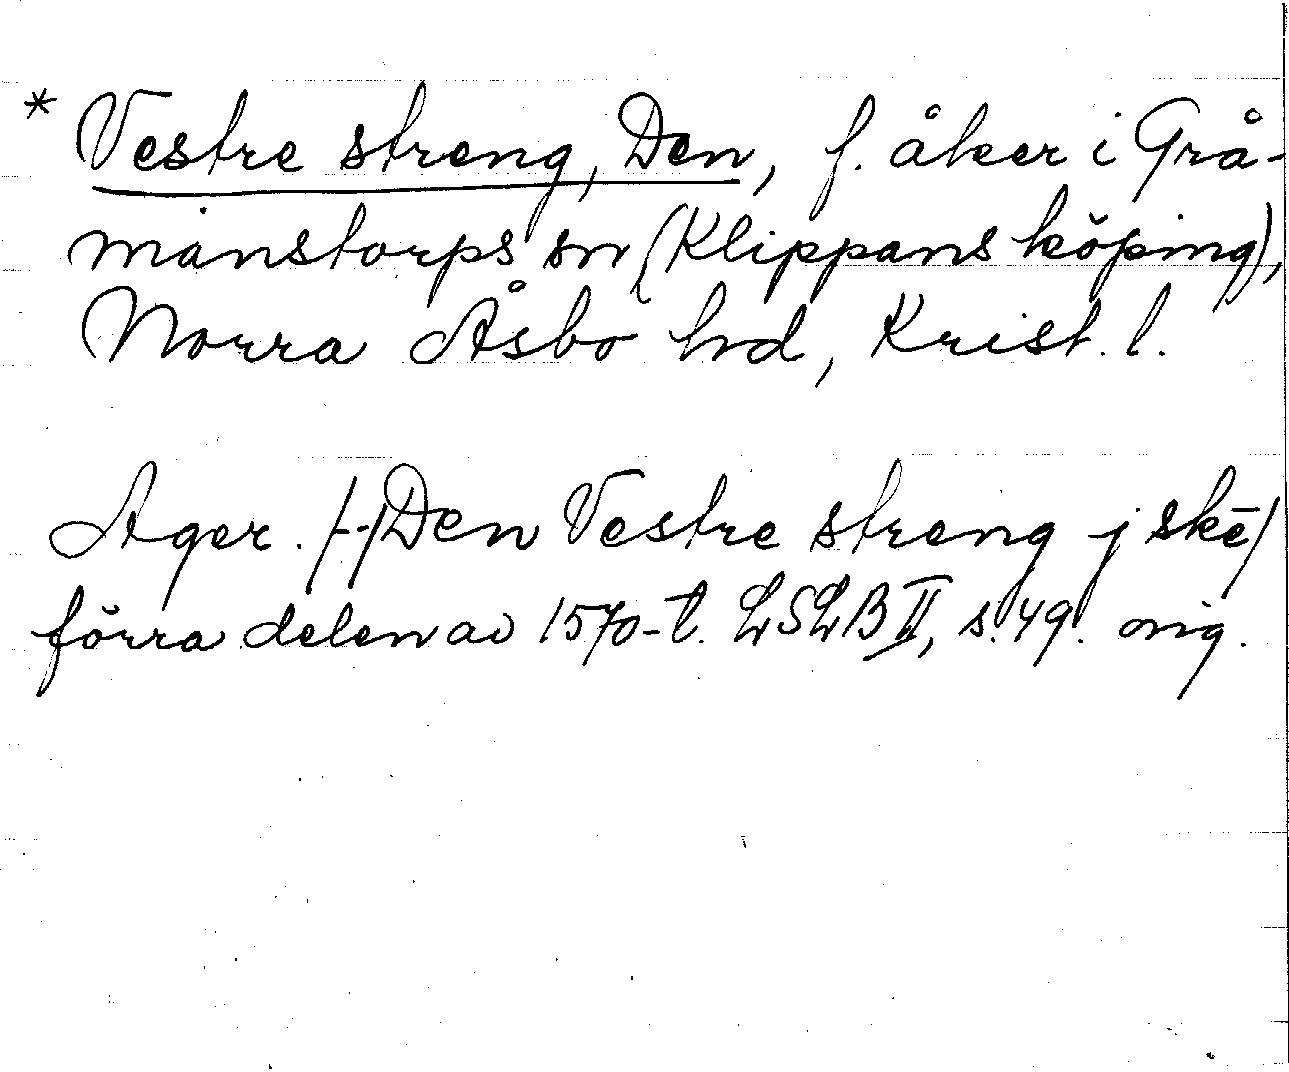 * Vestre streng, Den, f. åker i Grå-
manstorps sn (Klippans köping),
Norra Åsbo hd, Krist. l.
Ager. /-/ Den Vestre streng j skē/
förra delen av 1570-t. LSLB II, s. 49. orig.